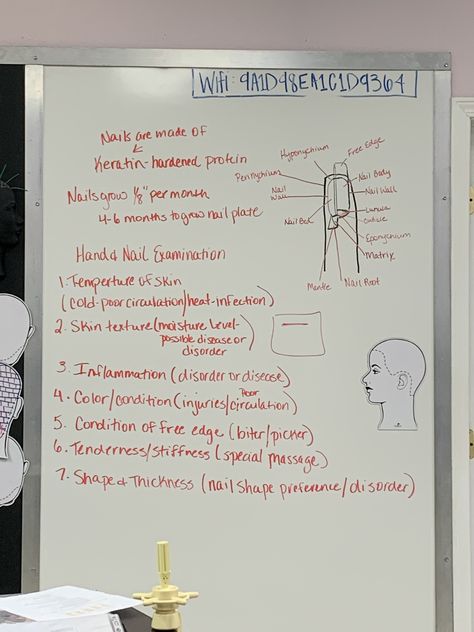 Wifi: 9A1D98EA1C1D9364
Nails are made of
Keratin-hardened protein
Nails grow 1/8" per month
4-6 months to grow nail plate
Hyponychium
Free Edge
Perinychium
Nail Body
Nail Wall
Nail Wall
Lunula
Nail Bed
Cuticle
Eponychium
Matrix
Mantle
Nail Root
Hand & Nail Examination
1. Temperture of skin
(cold-poor circulation/heat-infection)
2. Skin texture (moisture level-
possible disease or
disorder)
3. Inflammation (disorder or disease)
4. Color/condition (injuries/poor circulation)
5. Condition of free edge (biter/picker)
6. Tenderness/stiffness (special massage)
7. Shape & Thickness (nail shape preference/disorder)